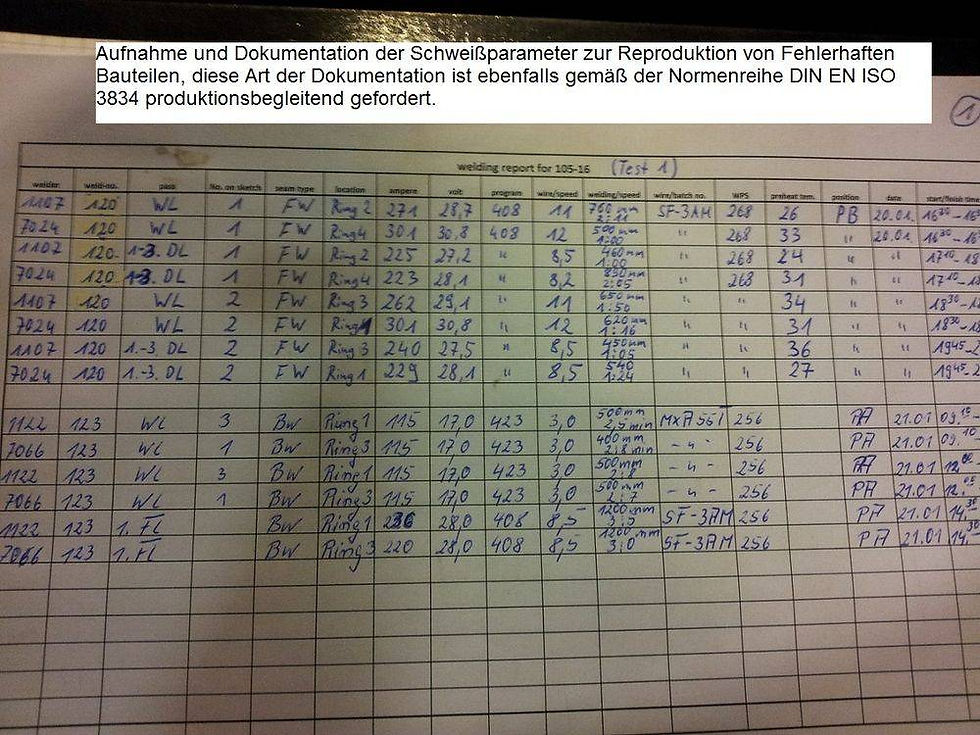 Aufnahme und Dokumentation der Schweißparameter zur Reproduktion von Fehlerhaften
Bauteilen, diese Art der Dokumentation ist ebenfalls gemäß der Normenreihe DIN EN ISO
3834 produktionsbegleitend gefordert.
1
welding report for 105-16 (Test 1)
welder weld-no. pass No. on sketch seam type location ampere volt program wire/speed welding/speed wire/batch no. WPS preheat tem. position date start/finish time
1107 120 WL 1 FW Ring 2 271 28,7 408 11 760 mm SF-3AM 268 26 PB 20.01. 16³⁰
7024 120 WL 1 FW Ring 4 301 30,8 408 12 500 mm 1:00 " 268 33 " 20.01. 16³⁰
1107 120 1-3. DL 1 FW Ring 2 225 27,2 " 8,5 460 mm 1:00 " 268 24 " " 17¹⁰
7024 120 1-3. DL 1 FW Ring 4 223 28,1 " 8,2 2:05 " 268 31 " " 17¹⁰
1107 120 WL 2 FW Ring 3 262 29,1 " 11 650 mm 1:50 " " 34 " " 18³⁰
7024 120 WL 2 FW Ring 1 301 30,8 " 12 620 mm 1:16 " " 31 " " 18³⁰
1107 120 1.-3. DL 2 FW Ring 3 240 27,5 " 8,5 450 mm 1:05 " " 36 " " 19⁴⁵
7024 120 1.-3. DL 2 FW Ring 1 229 28,1 " 8,5 540 1:24 " " 27 " " 19⁴⁵
1122 123 WL 3 BW Ring 1 115 17,0 423 3,0 500 mm 2,5 min MXA 55T 256 PA 21.01 09.¹⁵
7066 123 WL 1 BW Ring 3 115 17,0 423 3,0 400 mm 2:8 min - " - 256 PA 21.01 09.¹⁰
1122 123 WL 3 BW Ring 1 115 17,0 423 3,0 500 mm - " - 256 PA 21.01
7066 123 WL 1 BW Ring 3 115 17,0 423 3,0 500 mm 2:7 - " - 256 PA 21.01
1122 123 1. FL BW Ring 1 236 28,0 408 8,5 1200 mm 3:5 SF-3AM 256 PA 21.01 14.³⁰
7066 123 1. FL BW Ring 3 220 28,0 408 8,5 1200 mm 3:0 SF-3AM 256 PA 21.01 14.³⁰